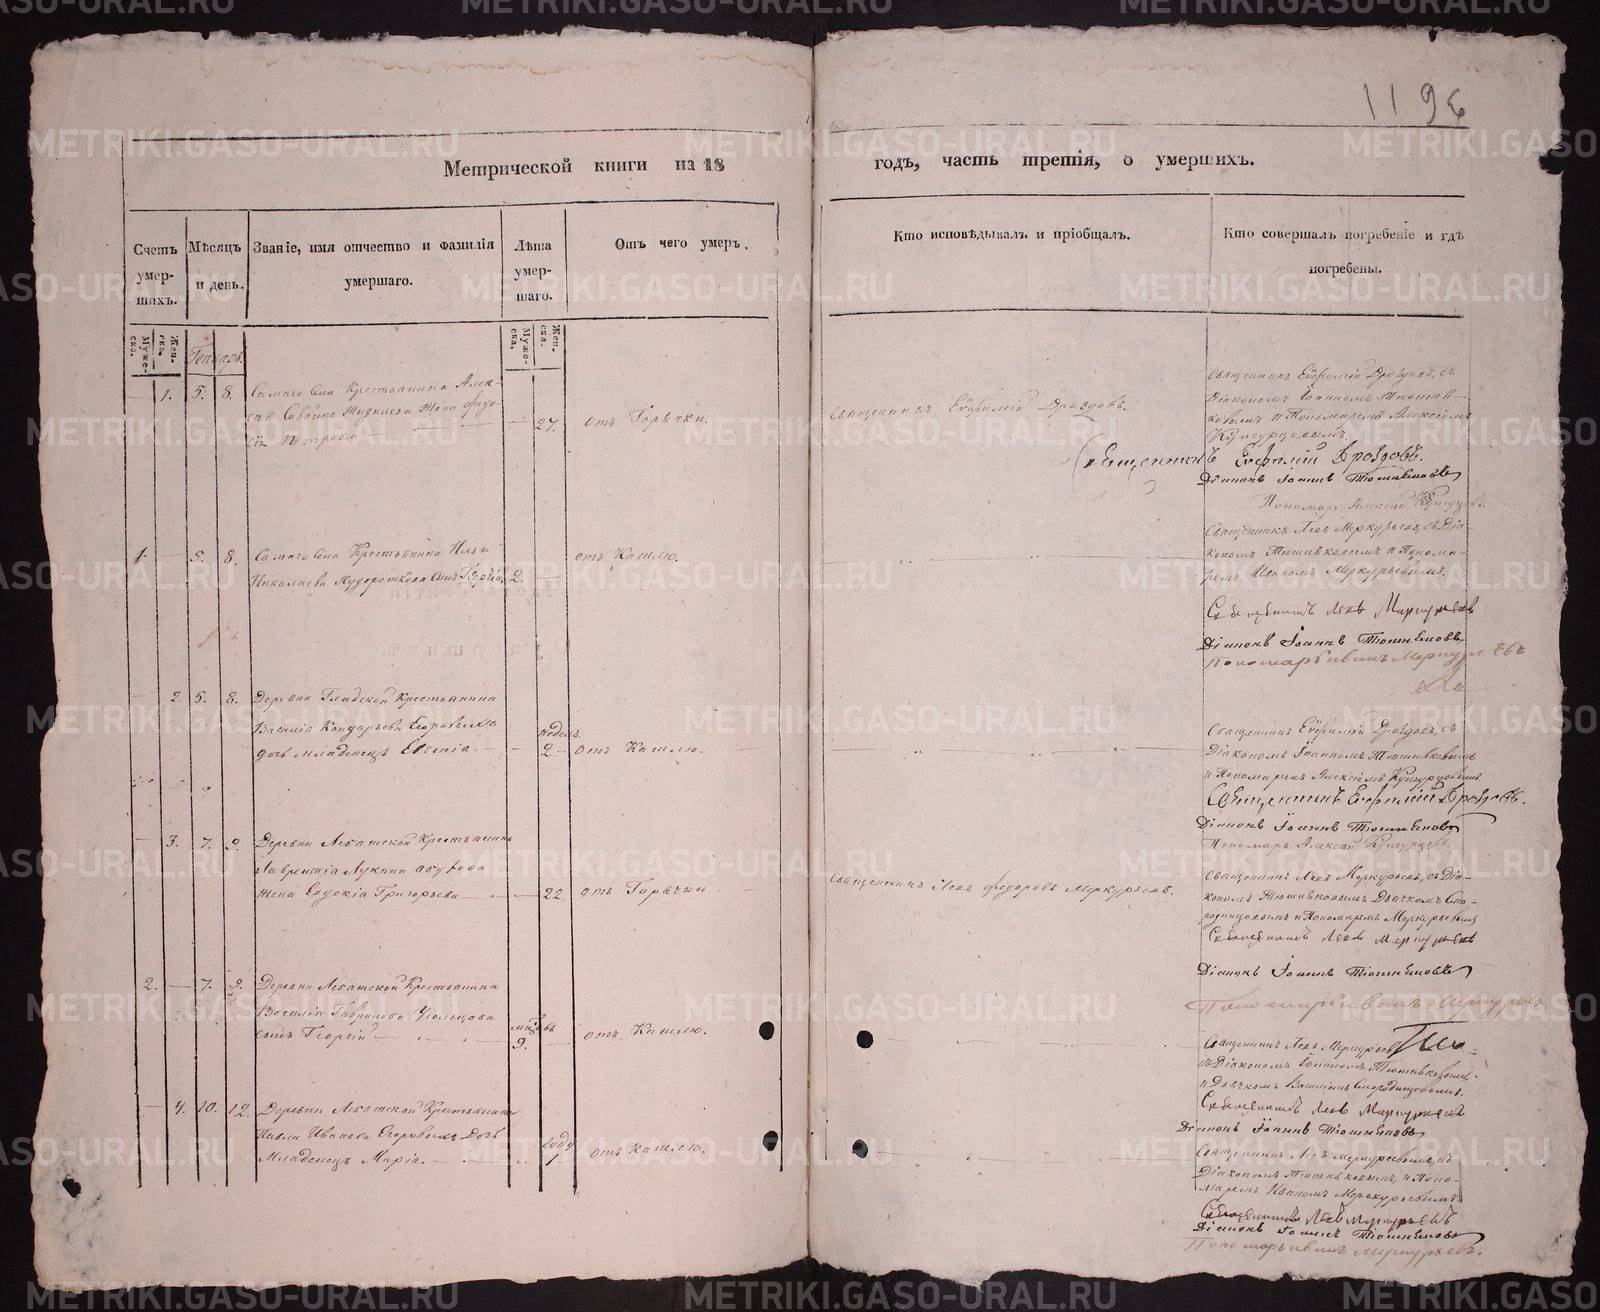 1196
Метрической книги на 18 годъ, часть третія, о умершихъ.
Счетъ умер-шихъ.
Мѣсяцъ и день.
Званіе, имя отчество и фамилія умершаго.
Лѣта умер-шаго.
Отъ чего умеръ.
Кто исповѣдывалъ и пріобщалъ.
Кто совершалъ погребеніе и гдѣ погребены.
Муже-ска.
Жен-ска.
Генварь.
Муже-ска.
Жен-ска.
— 1. 5. 8.
Самаго Села Крестьянина Алек-
сѣя Саввина Жена Федо-
сія Петрова
27.
отъ Горячки.
Священникъ Евфимій Дроздовъ.
Священникъ Евфимій Дроздовъ, съ
Діакономъ Іоанномъ Тюшняк-
овымъ и Пономаремъ Алексіемъ
Кунгурцовымъ.
Священникъ Евфимій Дроздовъ.
Діаконъ Іоаннъ Тюшняковъ
Пономарь Алексій Кунгурцовъ.
1. — 5. 8.
Самаго Села Крестьянина Ильи
Николаева Сынъ Георгій
2.
отъ Кашлю.
Священникъ Левъ Меркурьевъ, съ Діа-
кономъ Тюшняковымъ и Понома-
ремъ Иваномъ Меркурьевымъ.
Священникъ Левъ Меркурьевъ
Діаконъ Іоаннъ Тюшняковъ
Пономарь Иванъ Меркурьевъ
— 2. 5. 8.
Деревни Гладской Крестьянина
Василія Егоровыхъ
дочь младенецъ Евгенія
недель
2
отъ Кашлю.
Священникъ Евфимій Дроздовъ, съ
Діакономъ Іоанномъ Тюшняковымъ
и Пономаремъ Алексіемъ Кунгурцовымъ.
Священникъ Евфимій Дроздовъ.
Діаконъ Іоаннъ Тюшняковъ
Пономарь Алексій Кунгурцовъ.
— 3. 7. 9.
Деревни Лебатской Крестьянина
Лаврентія Лукина
Жена Евдокія Григорьева
22.
отъ Горячки
Священникъ Левъ Федоровъ Меркурьевъ.
Священникъ Левъ Меркурьевъ, съ Діа-
кономъ Тюшняковымъ Дьячкомъ Смо-
родинцовымъ и Пономаремъ Меркурьевымъ
Священникъ Левъ Меркурьевъ
Діаконъ Іоаннъ Тюшняковъ
Пономарь Иванъ Меркурьевъ
2. — 7. 9.
Деревни Лебатской Крестьянина
Василія Гаврилова
сынъ Георгій
9.
отъ Кашлю.
Священникъ Левъ Меркурьевъ
съ Діакономъ Іоанномъ Тюшняковымъ
и Дьячкомъ Василіемъ Смородинцовымъ.
Священникъ Левъ Меркурьевъ
Діаконъ Іоаннъ Тюшняковъ
— 4. 10. 12.
Деревни Лебатской Крестьянина
Павла Иванова Егоровыхъ Дочь
Младенецъ Марія.
году
1
отъ Кашлю.
Священникъ Левъ Меркурьевъ, съ
Діакономъ Тюшняковымъ, и Поно-
маремъ Иваномъ Меркурьевымъ
Священникъ Левъ Меркурьевъ
Діаконъ Іоаннъ Тюшняковъ
Пономарь Иванъ Меркурьевъ.
METRIKI.GASO-URAL.RU